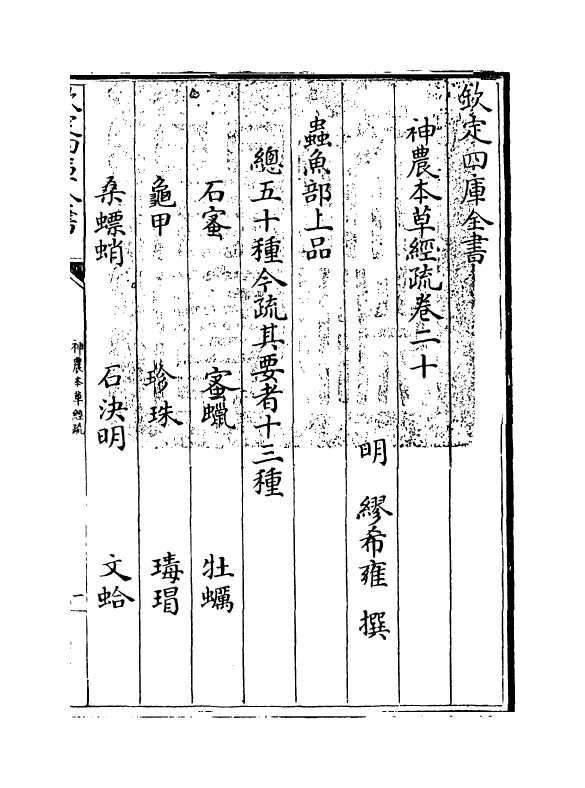 欽定四庫全書
神農本草經疏卷二十
明 繆希雍 撰
蟲魚部上品
總五十種今疏其要者十三種
石蜜 蜜蠟 牡蠣
龜甲 珍珠 瑇瑁
桑螵蛸 石決明 文蛤
欽定四庫全書
神農本草經疏
一